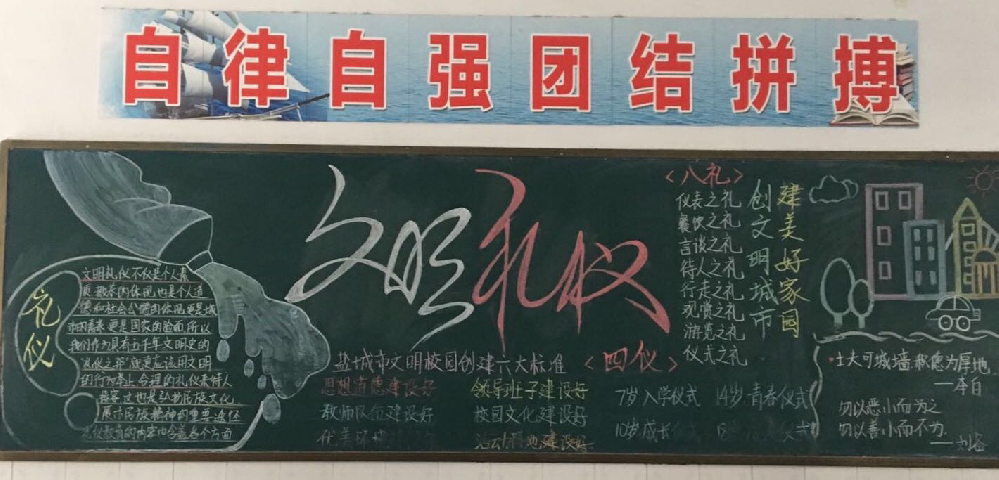 自律自强团结拼搏
文明礼仪
礼仪
文明礼仪不仅是个人素
质、教养的体现,也是个人道
德和社会公德的体现更是城
市的素养更是国家的脸面所以
我们作为具有五千年文明史的
"礼仪之邦"就更应该用文明
的行为举止合理的礼仪来待人
展示民族精神的重要途径
礼仪教育的内容也含盖各个方面
盐城市文明校园创建六大标准
思想道德建设好
领导班子建设好
教师队伍建设好
校园文化建设好
优美环境
活动阵地建设好
<八礼>
仪表之礼
餐饮之礼
言谈之礼
待人之礼
行走之礼
观赏之礼
游览之礼
仪式之礼
创文明城市
建美好家园
<四仪>
7岁入学仪式
14岁青春仪式
10岁成长
仪式
勿以恶小而为之
勿以善小而不为